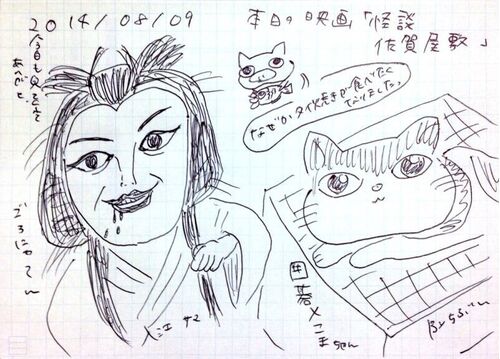 2014/08/09
本日の映画「怪談
佐賀屋敷」
今日も見に来て
なぜかタイ焼きが食べたく
なりました。
ごろにゃ〜ん
入江
囲碁×こまちゃん